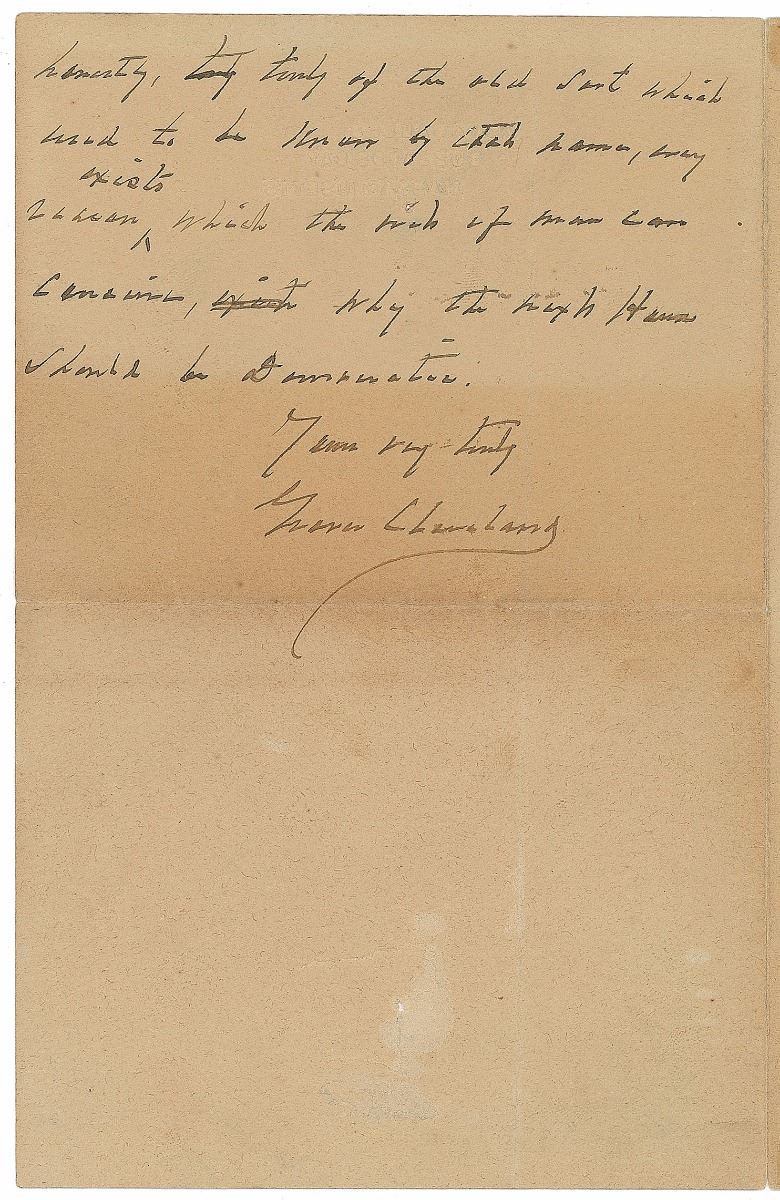 honesty, truly of the old sort which
used to be known by that name, every
exists
reason which the wit of man can
conceive, why the next House
should be Democratic.
Yours very truly
Grover Cleveland